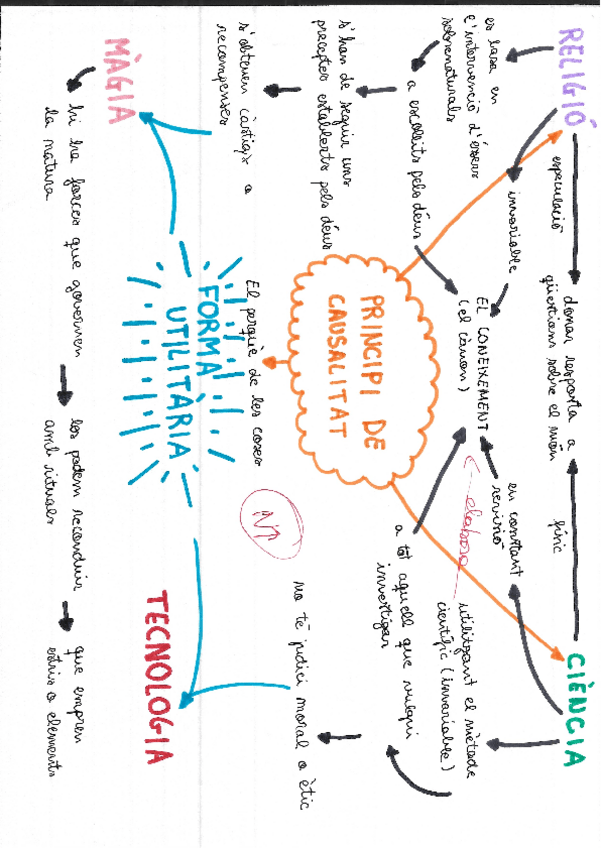 RELIGIÓ
especulació
donar resposta a
qüestions sobre el món
físic
CIÈNCIA
es basa en
l'intervenció d'éssers
sobrenaturals
invariable
EL CONEIXEMENT
(el cànon)
en constant
revisió
elabora
utilitzant el mètode
científic (invariable)
a escollits pels déus
a tot aquell que vulgui
investigar
s'han de seguir uns
preceptes establerts pels déus
PRINCIPI DE
CAUSALITAT
no té judici moral o ètic
s'obtenen càstigs o
recompenses
El perquè de les coses
FORMA
UTILITÀRIA
MÀGIA
TECNOLOGIA
hi ha forces que governen
la natura
los podem reconduir
amb rituals
que empren
estris o elements